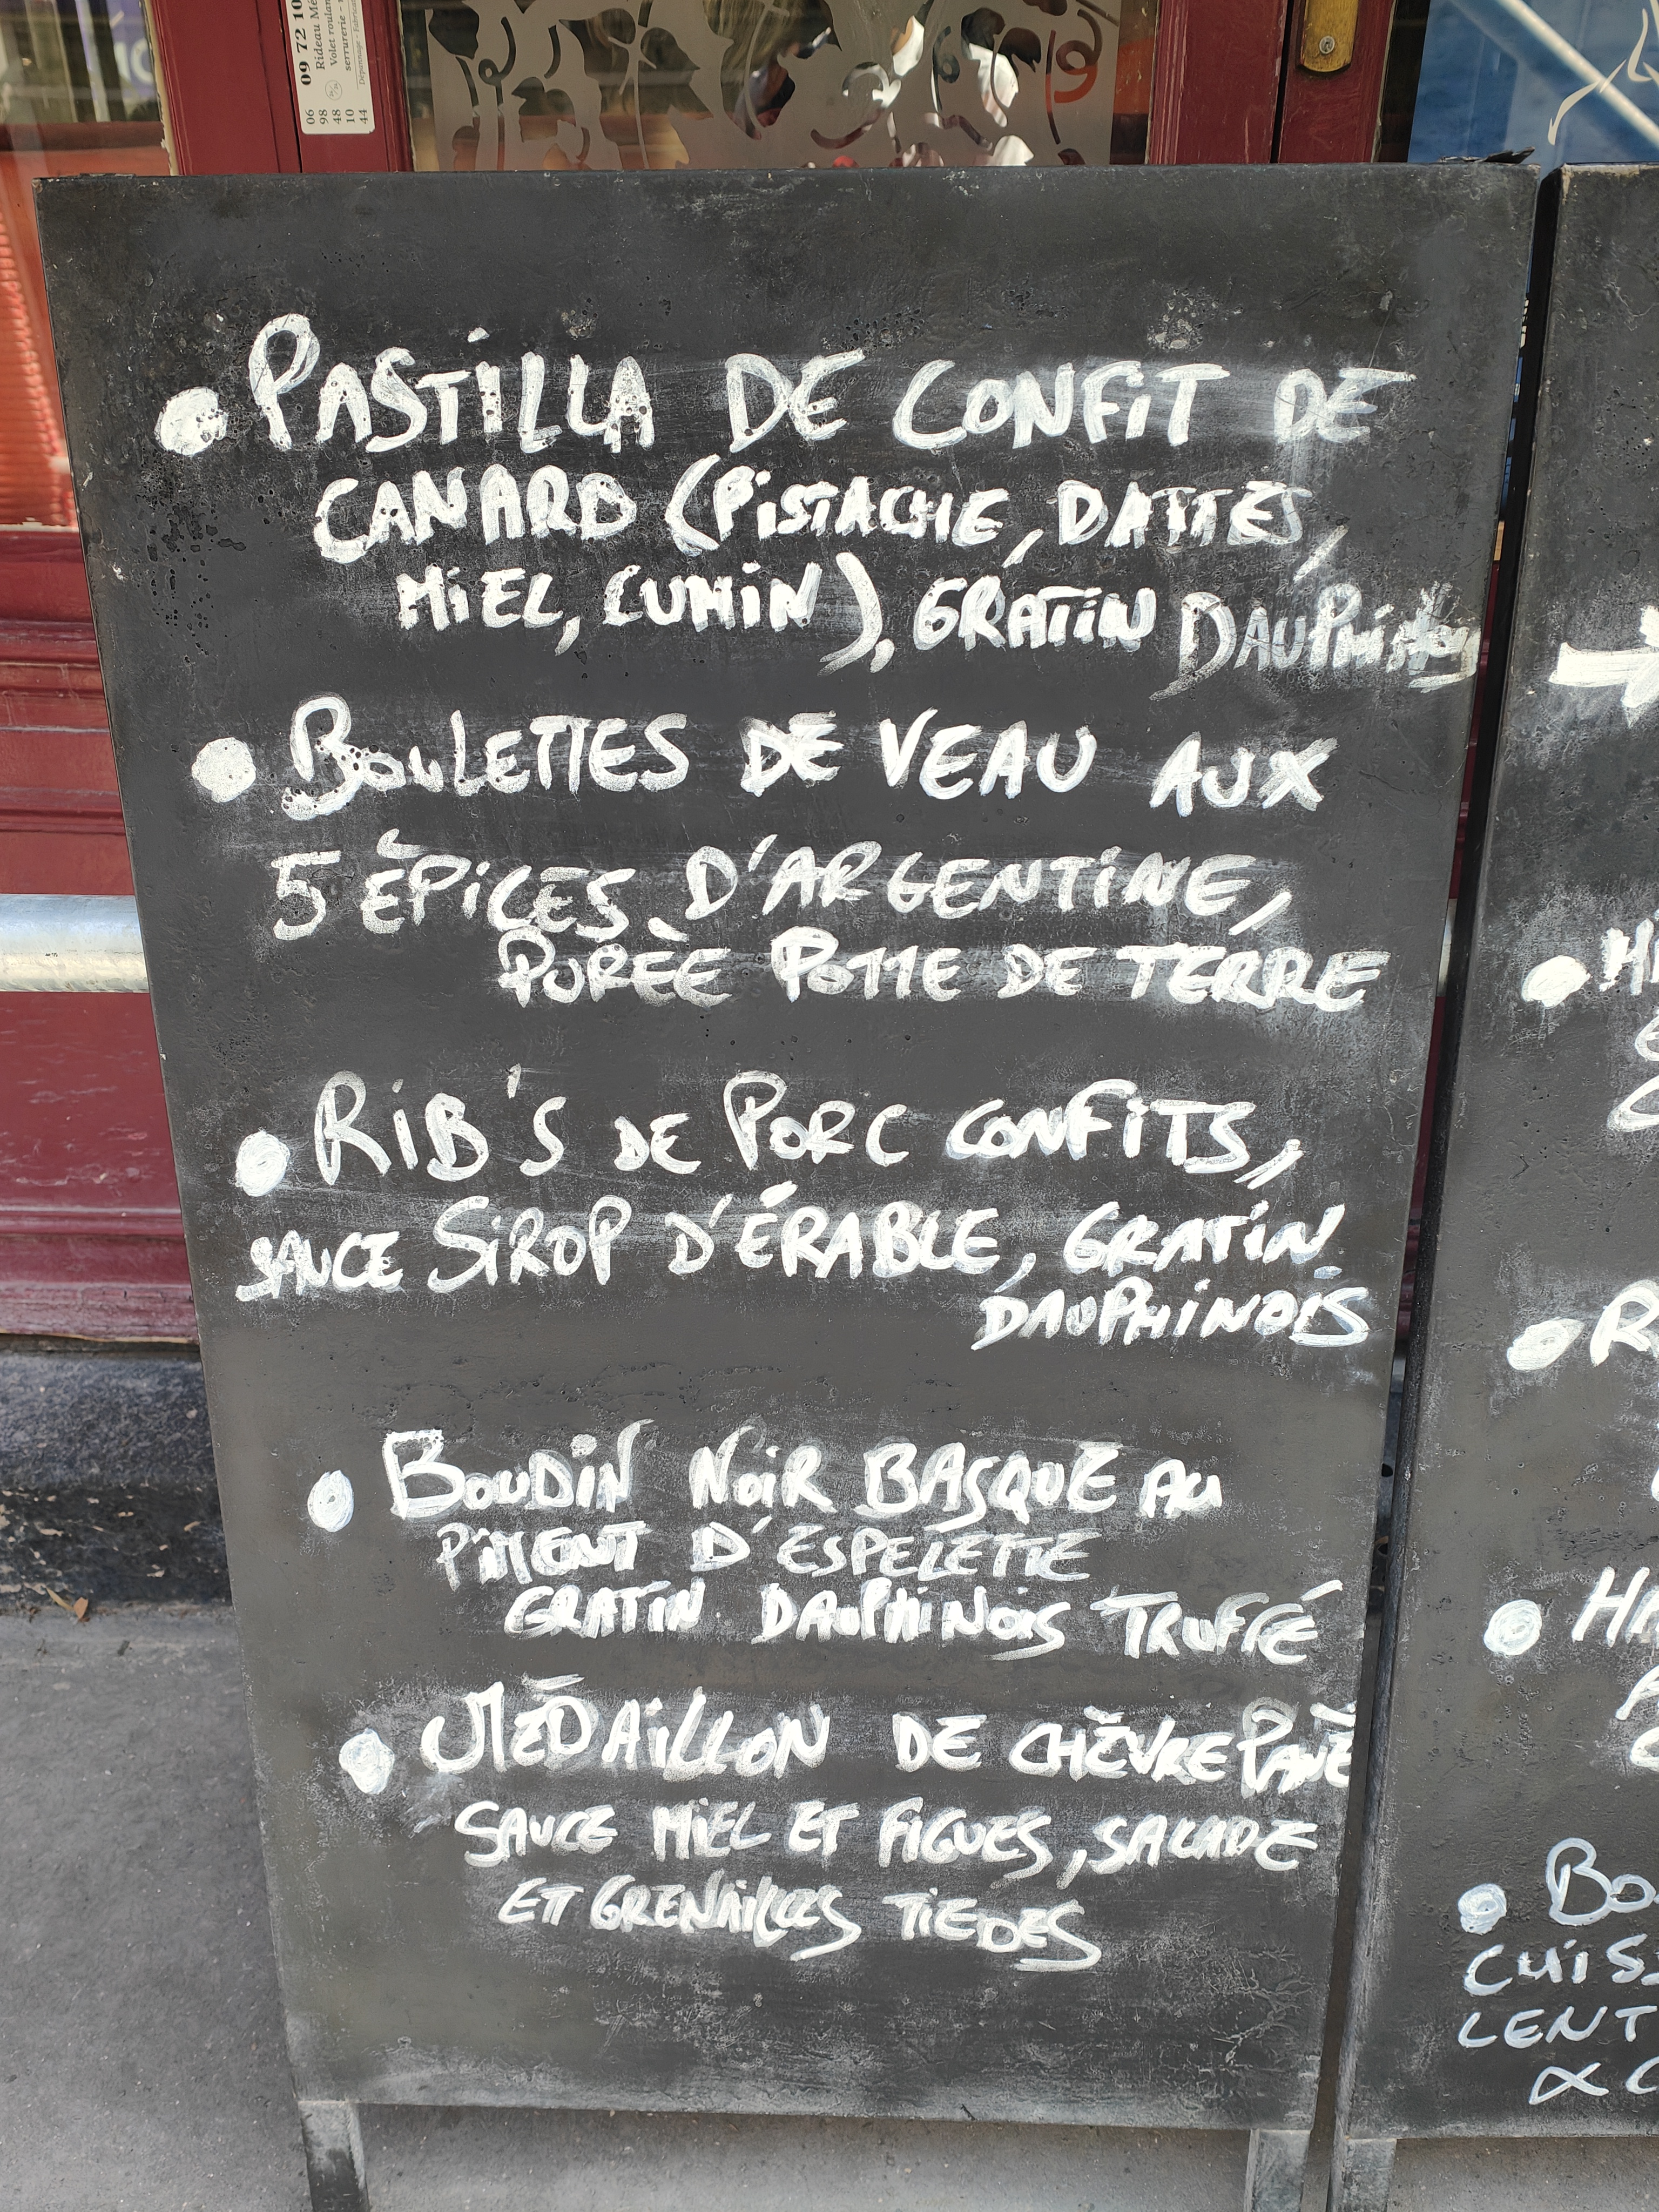 09 72 10
Rideau Mé
Volet roulan
serrurerie -
06
98
48
10
44
• PASTILLA DE CONFIT DE
CANARD (PISTACHE, DATTES,
MIEL, CUMIN), GRATIN
• BOULETTES DE VEAU AUX
5 ÉPICES D'ARGENTINE,
PURÈE POTTE DE TERRE
• RIB'S DE PORC CONFITS,
SAUCE SIROP D'ÉRABLE, GRATIN
DAUPHINOIS
• BOUDIN NOIR BASQUE AU
PIMENT D'ESPELETTE
GRATIN DAUPHINOIS TRUFFÉ
• MÉDAILLON DE CHÈVRE PANÉ
SAUCE MIEL ET FIGUES, SALADE
ET GRENAILLES TIEDES
• R
• HA
• BO
CUIS
LENT